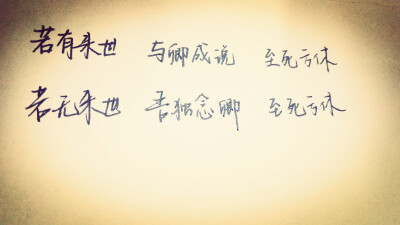 若有来世 与卿成说 至死方休
若无来世 吾独念卿 至死方休